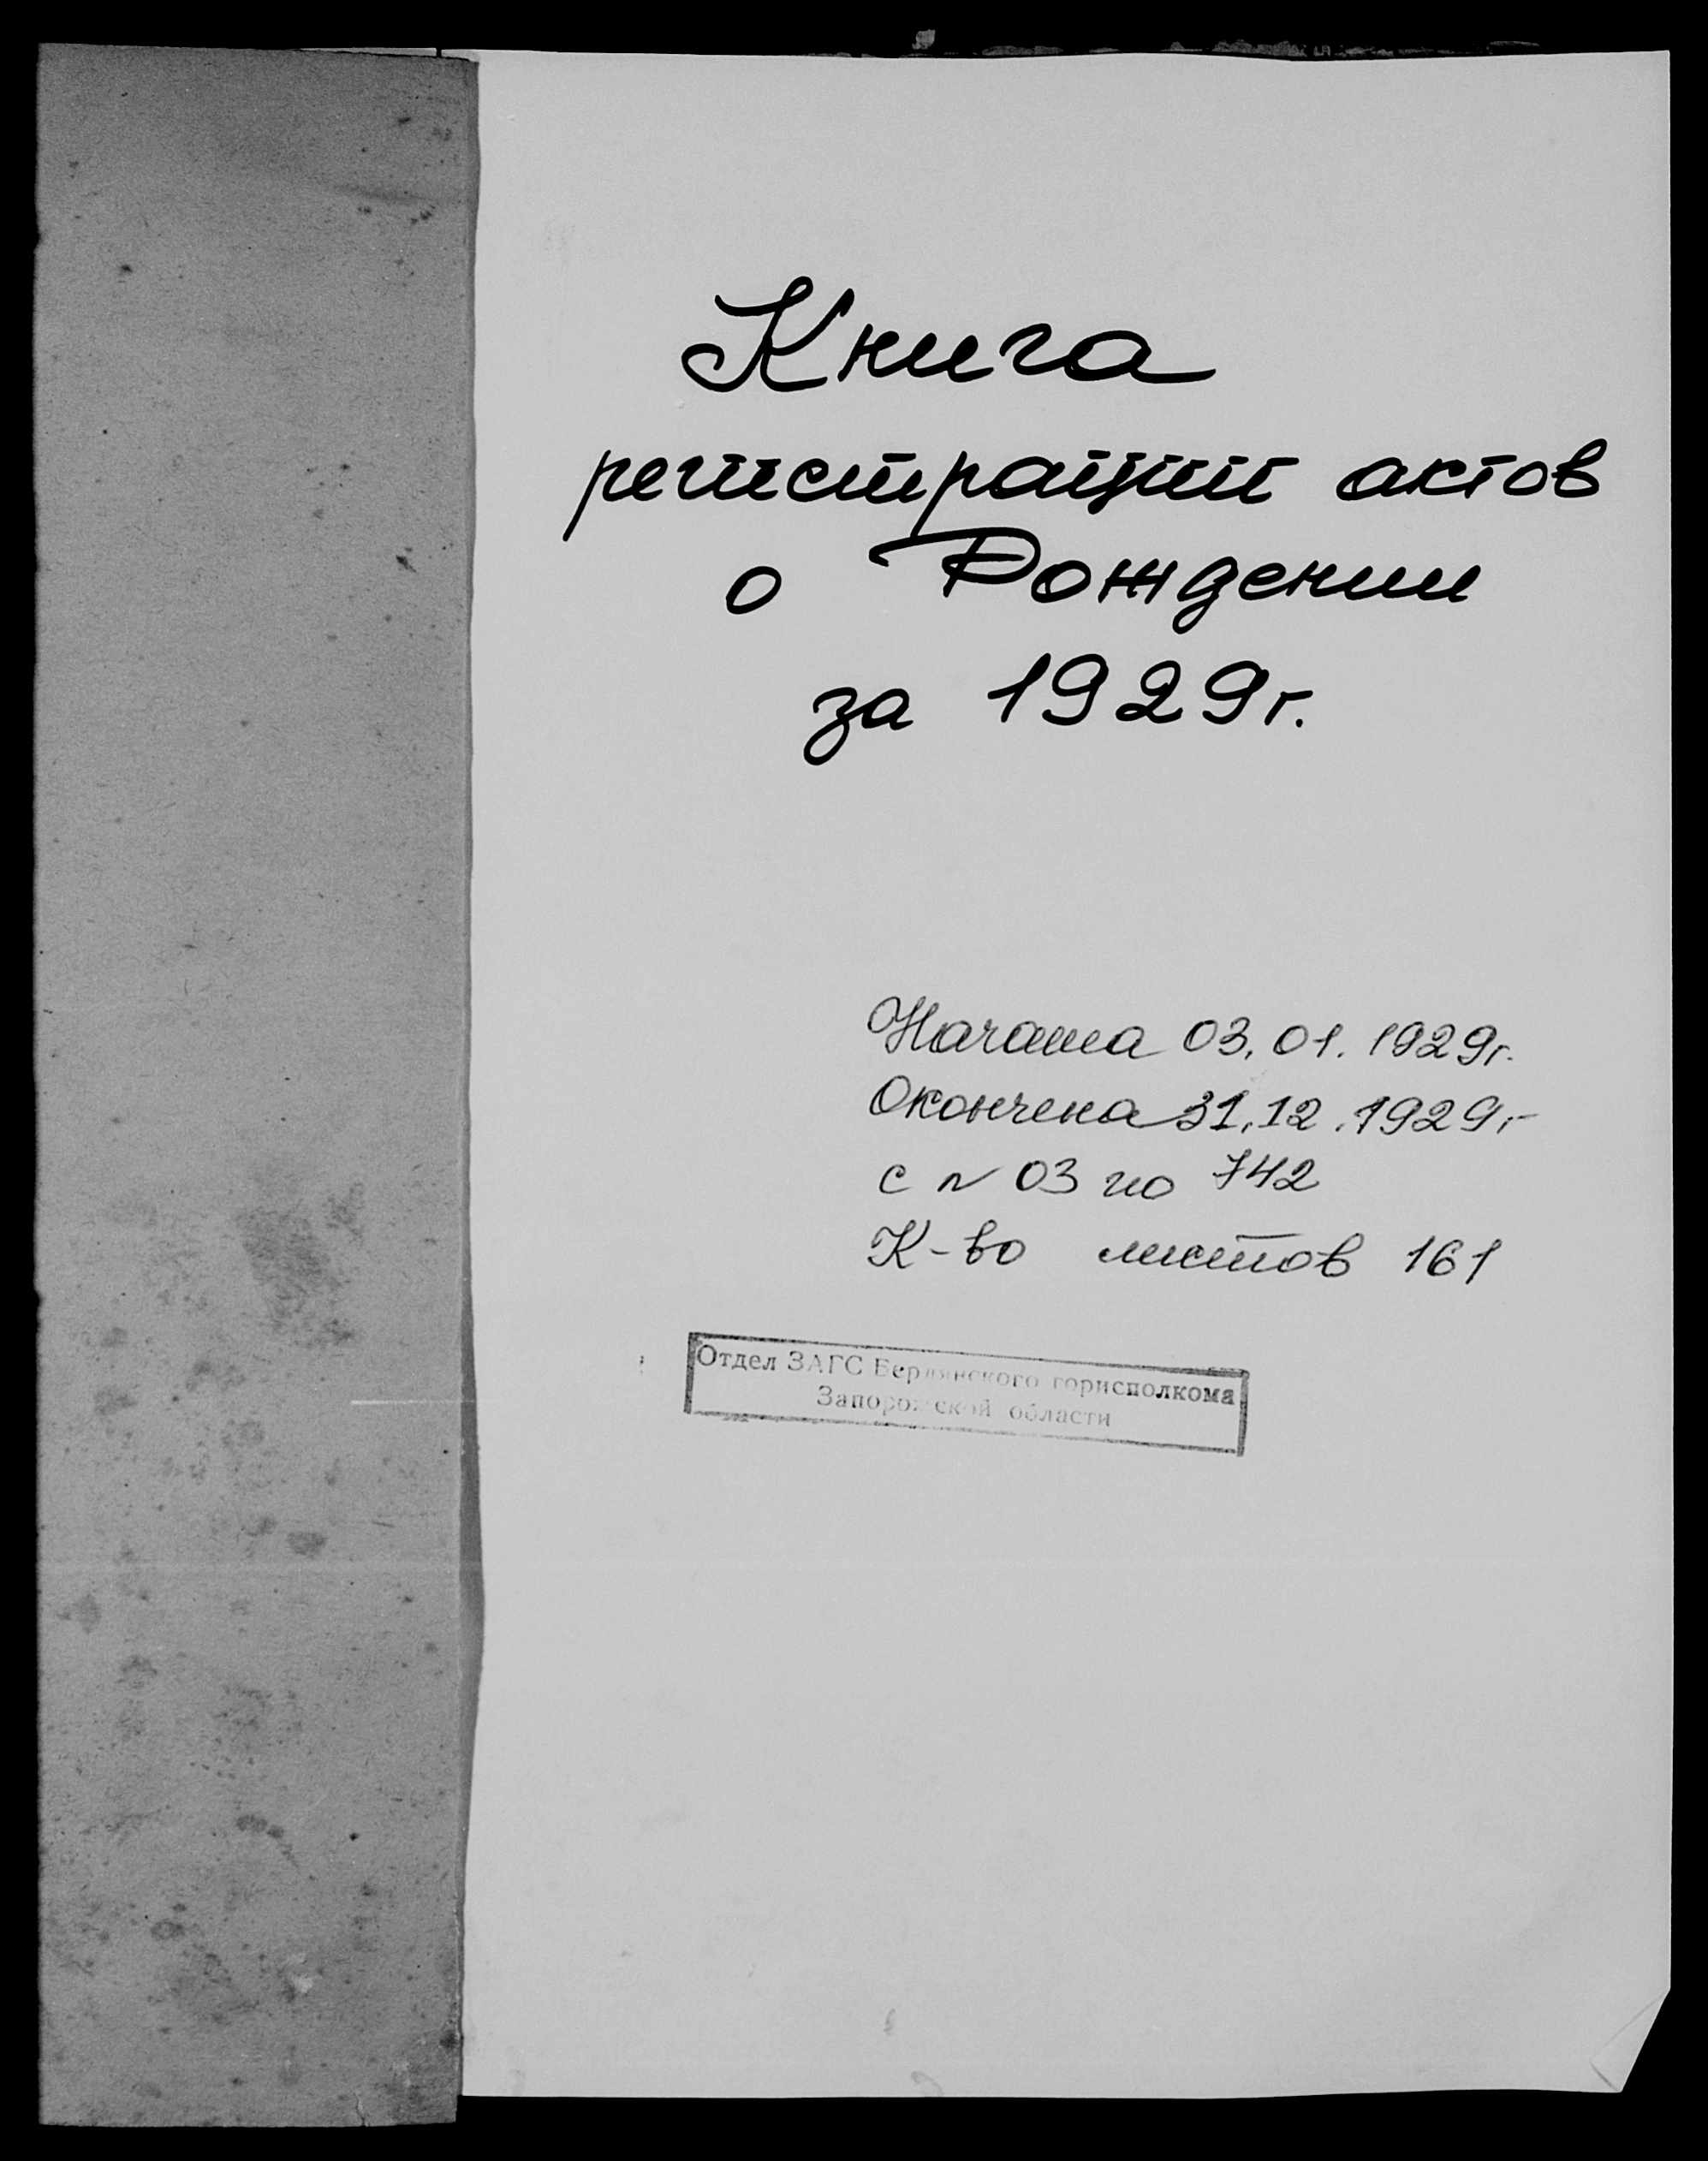 Книга
регистраций актов
о Рождении
за 1929г.
Начата 03.01.1929г.
Окончена 31.12.1929г
с № 03 по 742
К-во листов 161
Отдел ЗАГС Бердянского горисполкома
Запорожской области